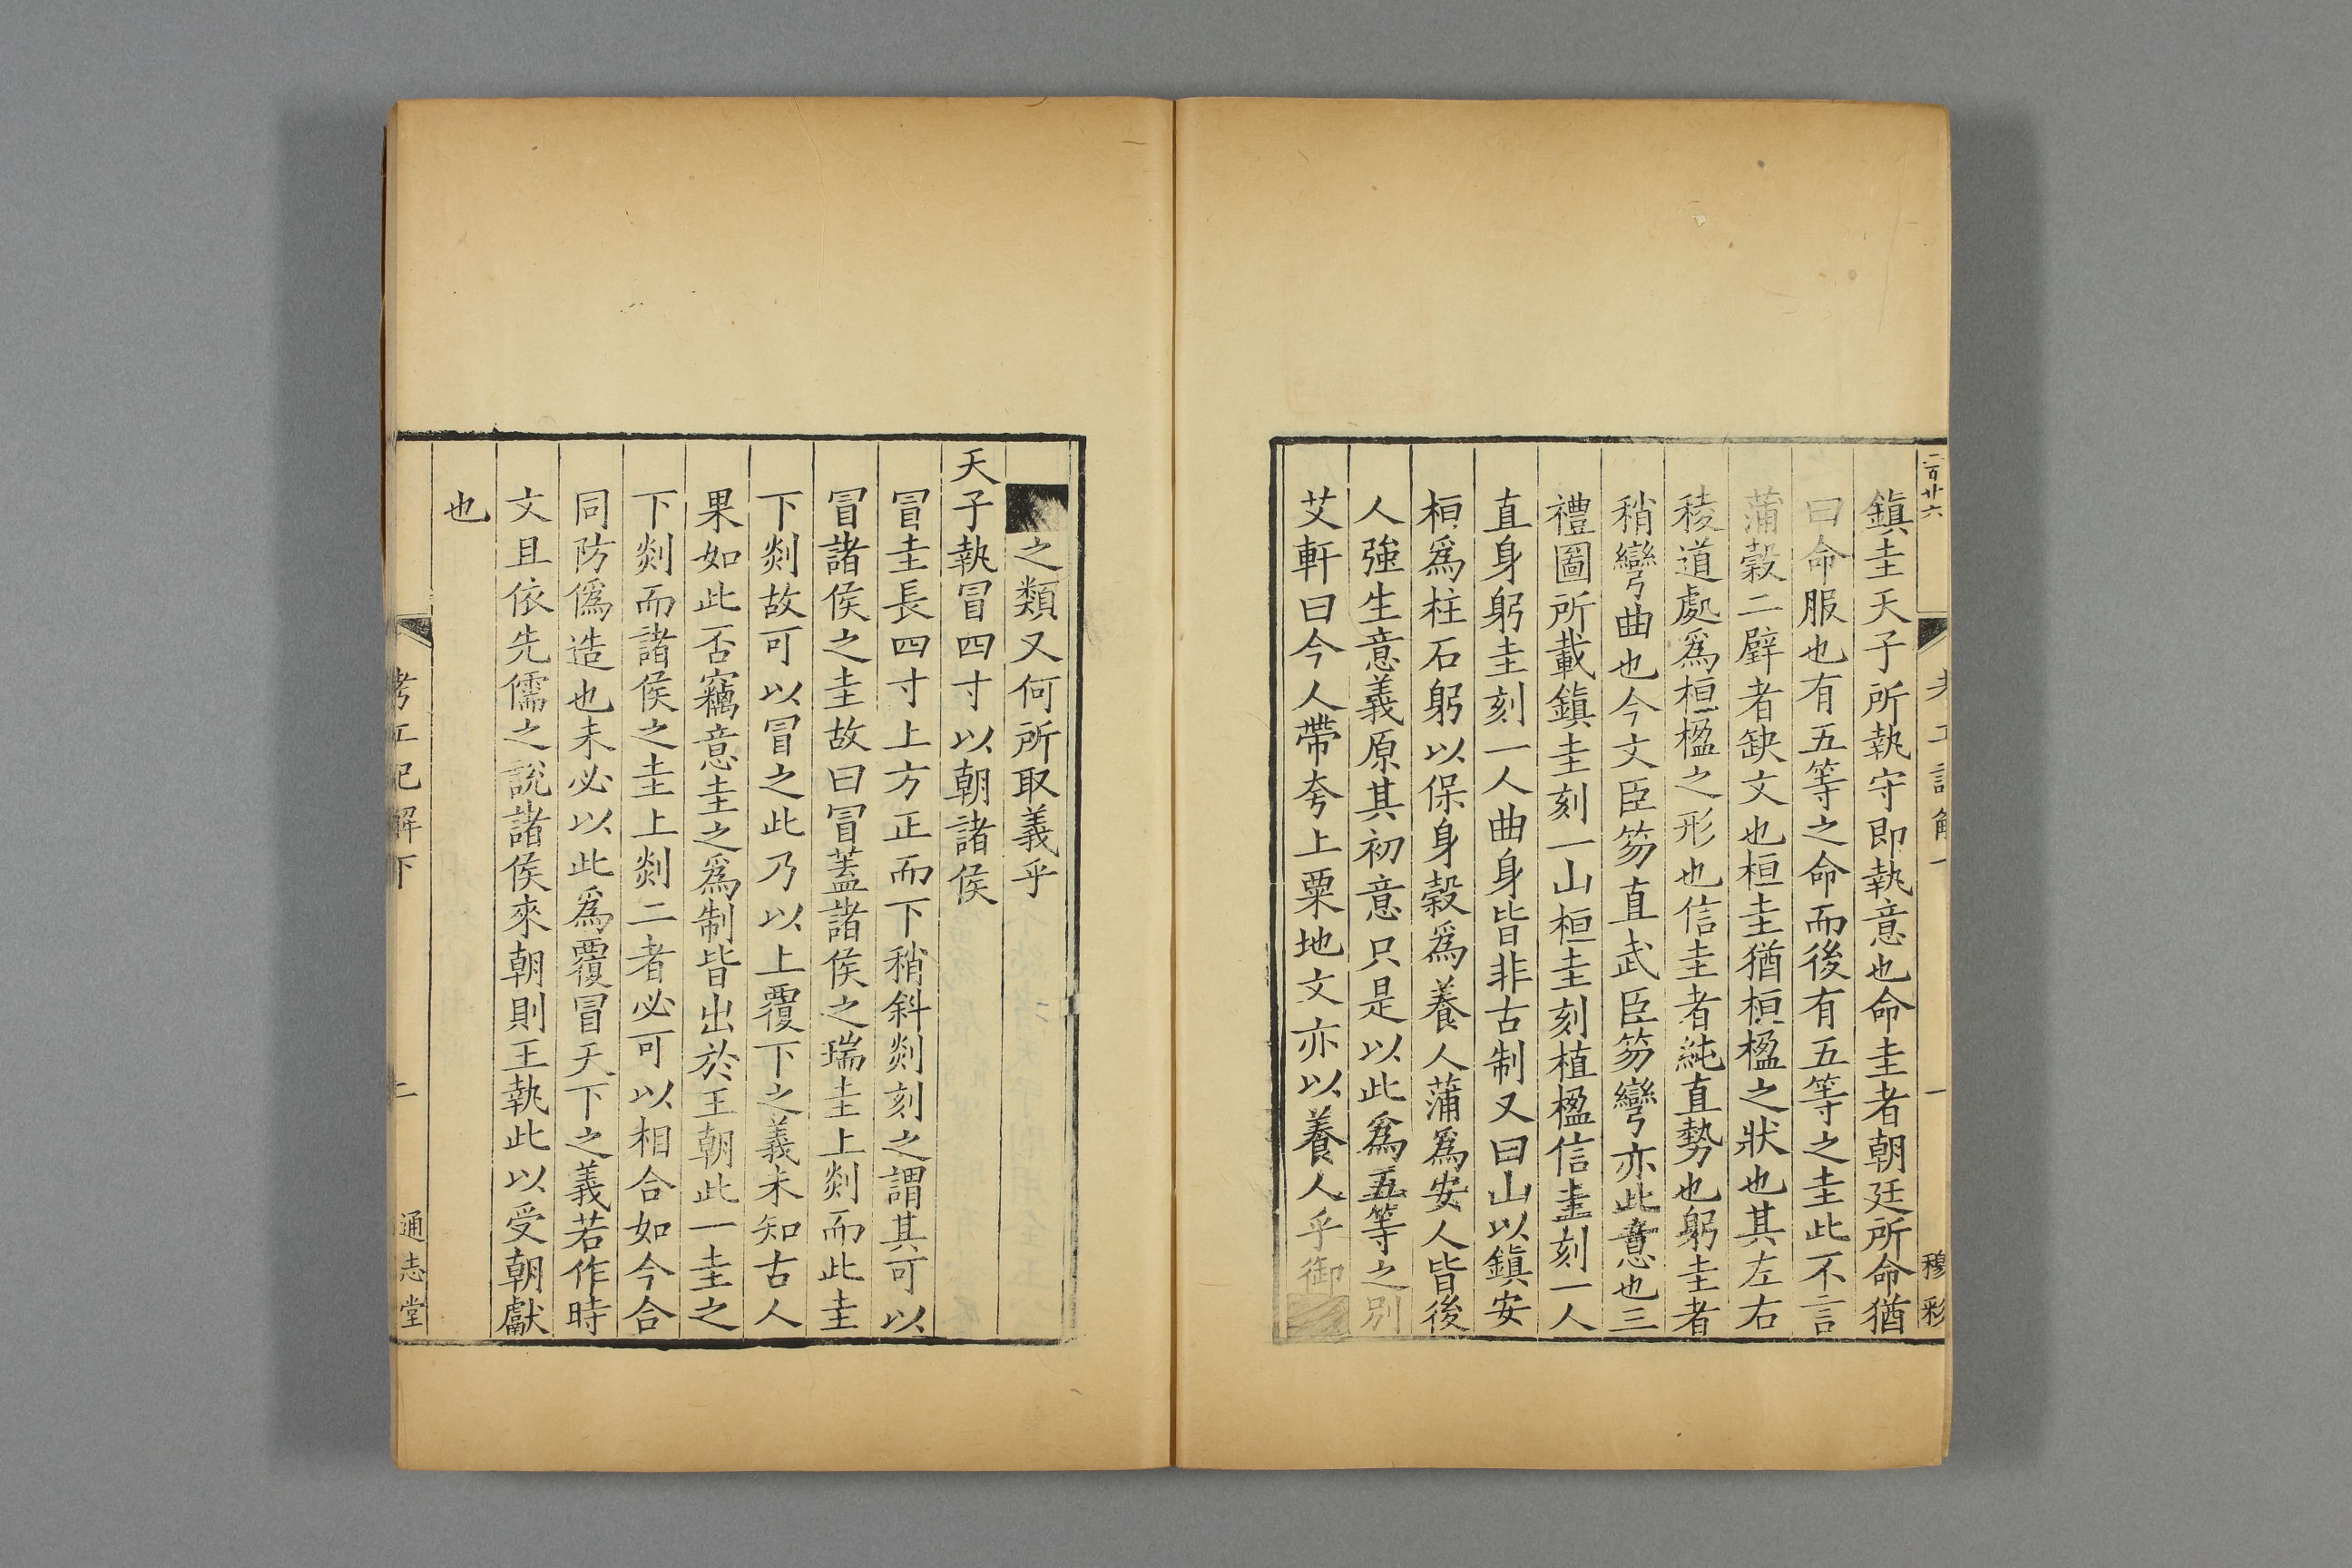 二百廿六
鎮圭天子所執守即執意也命圭者朝廷所命猶
曰命服也有五等之命而後有五等之圭此不言
蒲穀二璧者缺文也桓圭猶桓楹之狀也其左右
稜道處爲桓楹之形也信圭者純直勢也躬圭者
稍彎曲也今文臣笏直武臣笏彎亦此意也三
禮圖所載鎮圭刻一山桓圭刻植楹信圭刻一人
直身躬圭刻一人曲身皆非古制又曰山以鎮安
桓爲柱石躬以保身穀爲養人蒲爲安人皆後
人強生意義原其初意只是以此爲五等之別
艾軒曰今人帶夸上粟地文亦以養人乎御
之類又何所取義乎
天子執冒四寸以朝諸侯
冒圭長四寸上方正而下稍斜剡刻之謂其可以
冒諸侯之圭故曰冒蓋諸侯之瑞圭上剡而此圭
下剡故可以冒之此乃以上覆下之義未知古人
果如此否竊意圭之爲制皆出於王朝此一圭之
下剡而諸侯之圭上剡二者必可以相合如今合
同防僞造也未必以此爲覆冒天下之義若作時
文且依先儒之說諸侯來朝則王執此以受朝獻
也
考工記解下
通志堂